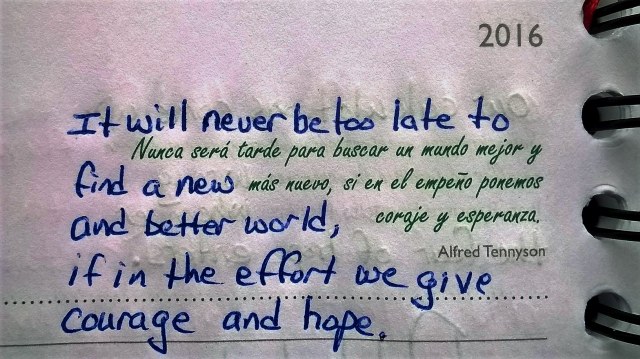 2016
It will never be too late to
Nunca será tarde para buscar un mundo mejor y
find a new
más nuevo, si en el empeño ponemos
and better world,
coraje y esperanza.
Alfred Tennyson
if in the effort we give
courage and hope.